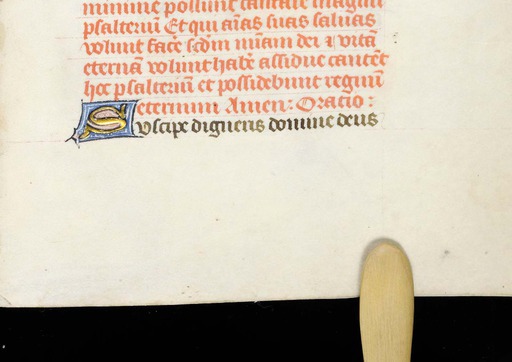 minime possunt cantare imagini
psalteriū Et qui aīas suas saluas
volunt facē scdm̄ mīam dei ⁊ vitā
eternā volunt habē assidue cantēt
hoc psalteriū et possidebunt regnū
eternum Amen: Oratio:
Suscipe digneris domine deus